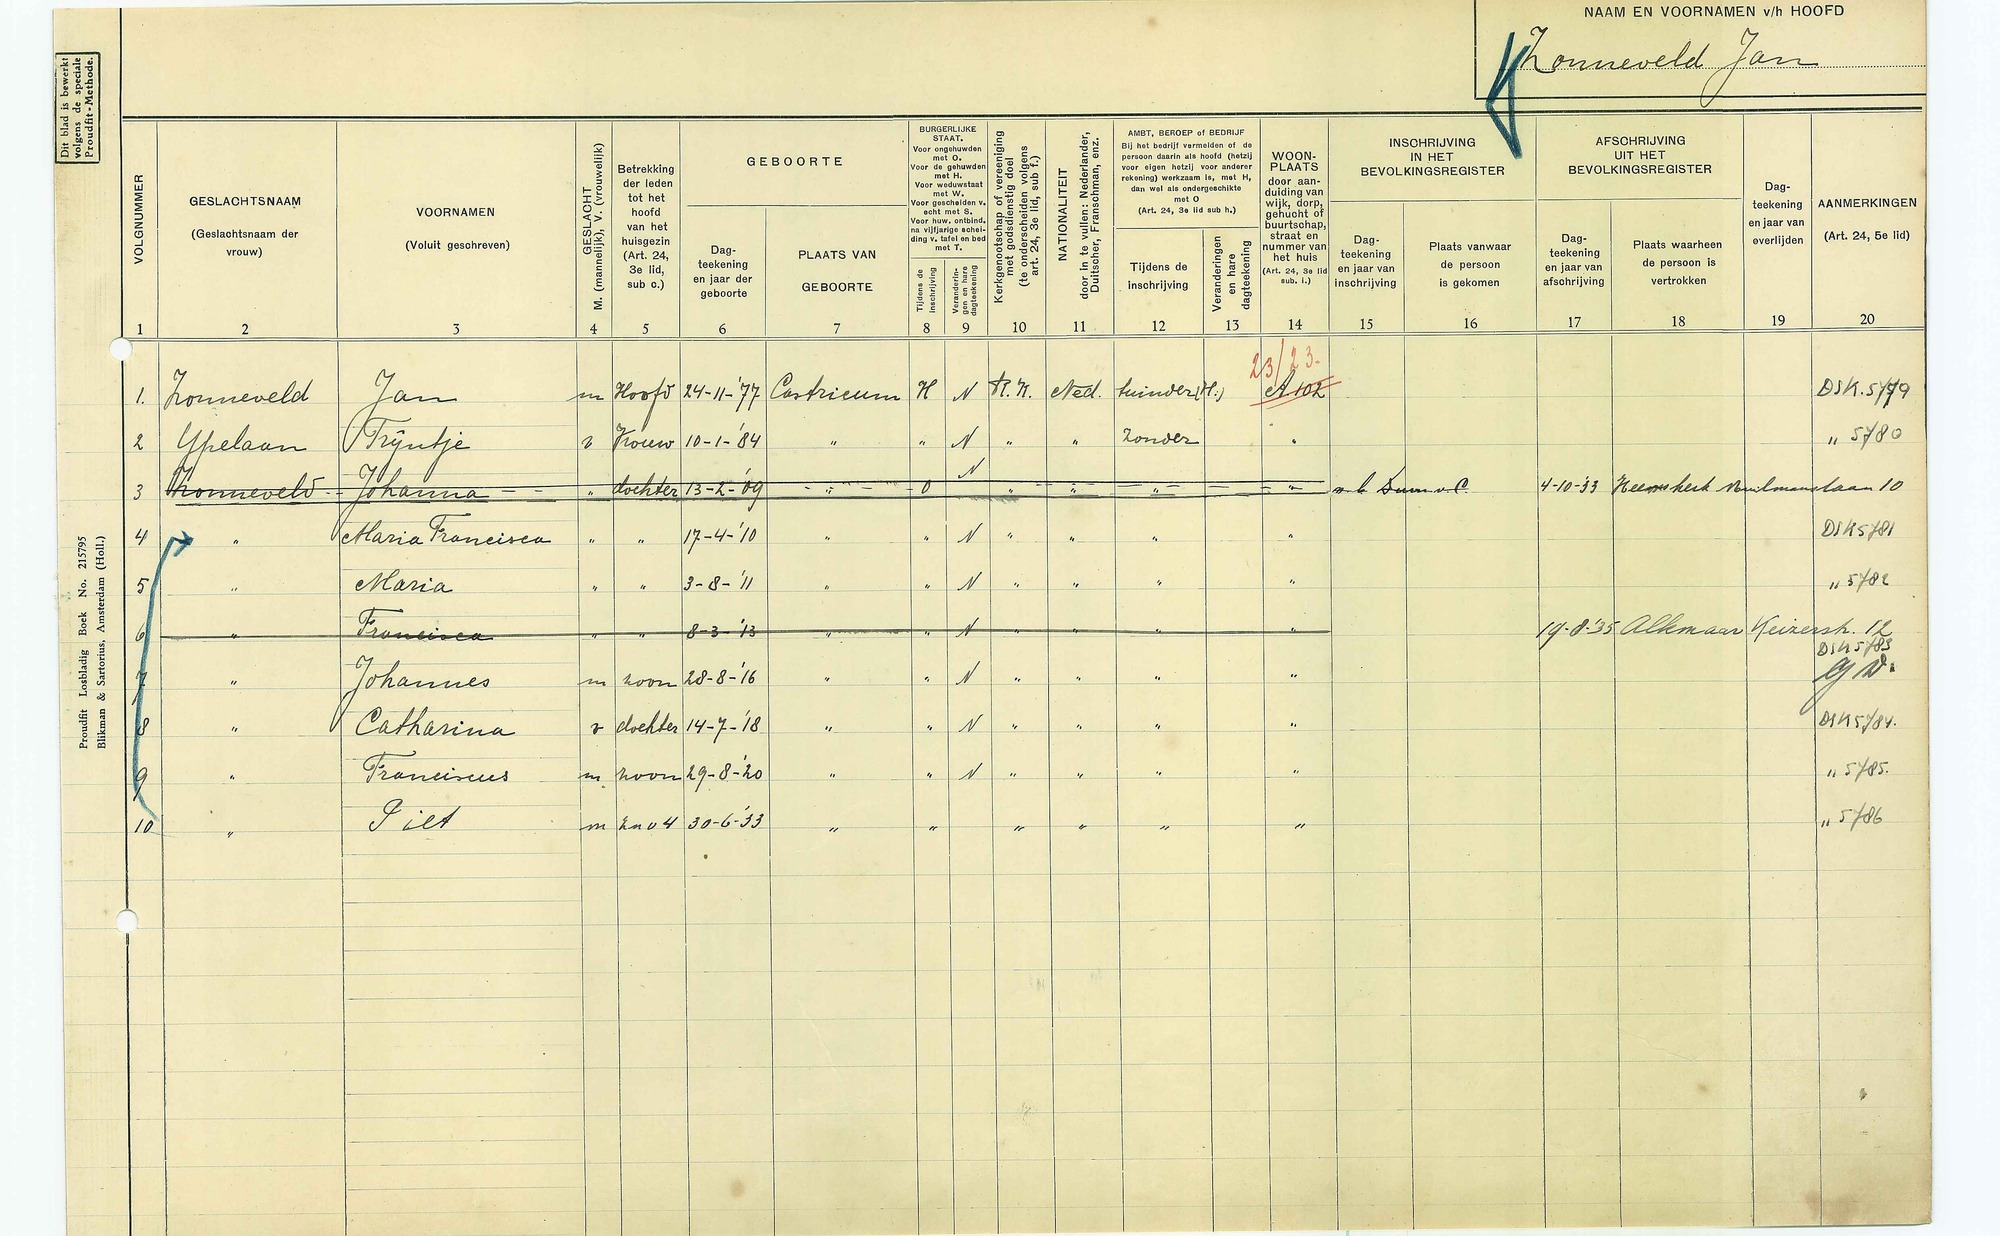 NAAM EN VOORNAMEN v/h HOOFD
Zonneveld Jan
Dit blad is bewerkt
volgens de speciale
Proudfit-Methode.
Proudfit Losbladig Boek No. 215795
Blikman & Sartorius, Amsterdam (Holl.)
VOLGNUMMER
1
GESLACHTSNAAM
(Geslachtsnaam der
vrouw)
2
VOORNAMEN
(Voluit geschreven)
3
GESLACHT
M. (mannelijk), V. (vrouwelijk)
4
Betrekking
der leden
tot het
hoofd
van het
huisgezin
(Art. 24,
3e lid,
sub c.)
5
GEBOORTE
Dag-
teekening
en jaar der
geboorte
6
PLAATS VAN
GEBOORTE
7
BURGERLIJKE
STAAT.
Voor ongehuwden
met O.
Voor de gehuwden
met H.
Voor weduwstaat
met W.
Voor gescheiden v.
echt met S.
Voor huw. ontbind.
na vijfjarige schei-
ding v. tafel en bed
met T.
Tijdens de
inschrijving
8
Veranderin-
gen en hare
dagteekening
9
Kerkgenootschap of vereeniging
met godsdienstig doel
(te onderscheiden volgens
art. 24, 3e lid, sub f.)
10
NATIONALITEIT
door in te vullen: Nederlander,
Duitscher, Franschman, enz.
11
AMBT, BEROEP of BEDRIJF
Bij het bedrijf vermelden of de
persoon daarin als hoofd (hetzij
voor eigen hetzij voor anderer
rekening) werkzaam is, met H,
dan wel als ondergeschikte
met O
(Art. 24, 3e lid sub h.)
Tijdens de
inschrijving
12
Veranderingen
en hare
dagteekening
13
WOON-
PLAATS
door aan-
duiding van
wijk, dorp,
gehucht of
buurtschap,
straat en
nummer van
het huis
(Art. 24, 3e lid
sub. i.)
14
INSCHRIJVING
IN HET
BEVOLKINGSREGISTER
Dag-
teekening
en jaar van
inschrijving
15
Plaats vanwaar
de persoon
is gekomen
16
AFSCHRIJVING
UIT HET
BEVOLKINGSREGISTER
Dag-
teekening
en jaar van
afschrijving
17
Plaats waarheen
de persoon is
vertrokken
18
Dag-
teekening
en jaar van
overlijden
19
AANMERKINGEN
(Art. 24, 5e lid)
20
23/23-
1. Zonneveld Jan m Hoofd 24-11-'77 Castricum H N R.K. Ned. tuinder (H.) A 102 DSK. 5779
2 Ypelaan Trijntje v Vrouw 10-1-'84 " " N " " Zonder " " 5780
3 Zonneveld Johanna " dochter 13-2-'09 " O N " " " " 4-10-'33 Heemskerk 10
4 " Maria Francisca " " 17-4-'10 " " N " " " " DSK 5781
5 " Maria " " 3-8-'11 " " N " " " " " 5782
6 " Francisca " " 8-3-'13 " " N " " " " 19-8-'35 Alkmaar Keizerstr. 12
7 " Johannes m zoon 28-8-'16 " " N " " " " DSK 5783
8 " Catharina v dochter 14-7-'18 " " N " " " " DSK 5784.
9 " Franciscus m zoon 29-8-'20 " " N " " " " " 5785.
10 " Piet m zn v 4 30-6-'33 " " " " " " " 5786